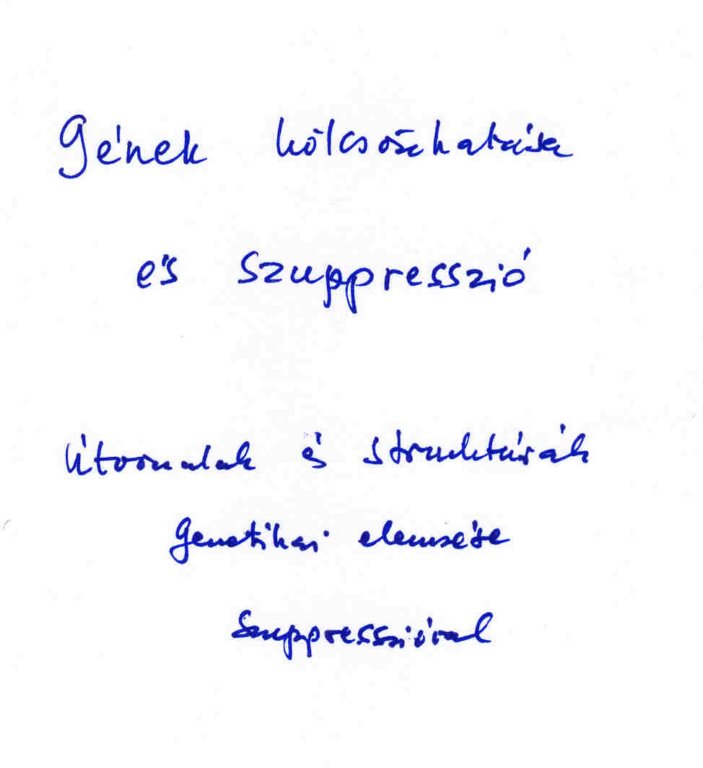 Gének kölcsönhatása
és szuppresszió
Útvonalak és struktúrák
genetikai elemzése
szuppresszióval